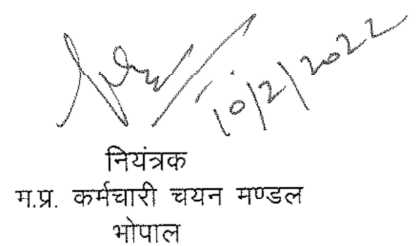 10/2/2022
नियंत्रक
म.प्र. कर्मचारी चयन मण्डल
भोपाल